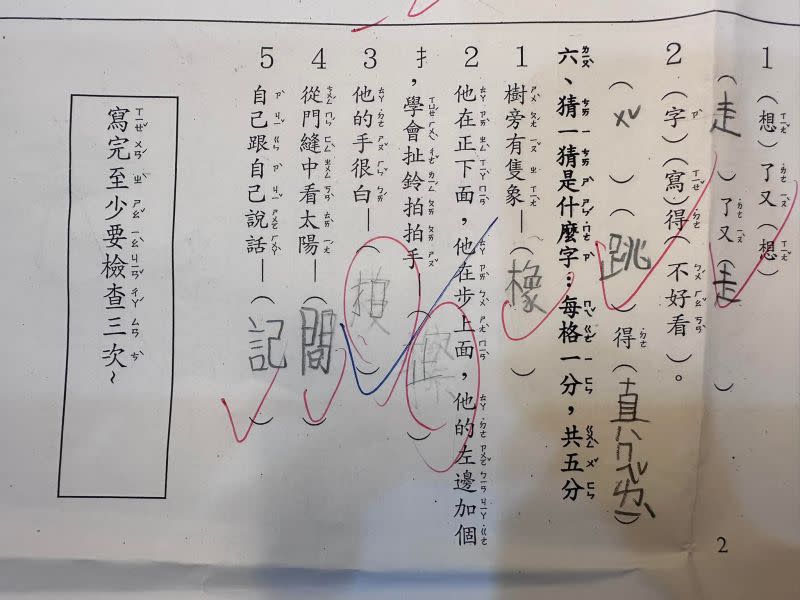 1（想）了又（想）
（走）了又（走）
2（字）（寫）得（不好看）。
（ㄨˇ）（跳）得（真）
六、猜一猜是什麼字：每格一分，共五分
1樹旁有隻象—（橡）
2他在正下面，他在步上面，他的左邊加個
扌，學會扯鈴拍拍手—（）
3他的手很白—（）
4從門縫中看太陽—（間）
5自己跟自己說話—（記）
寫完至少要檢查三次~
2